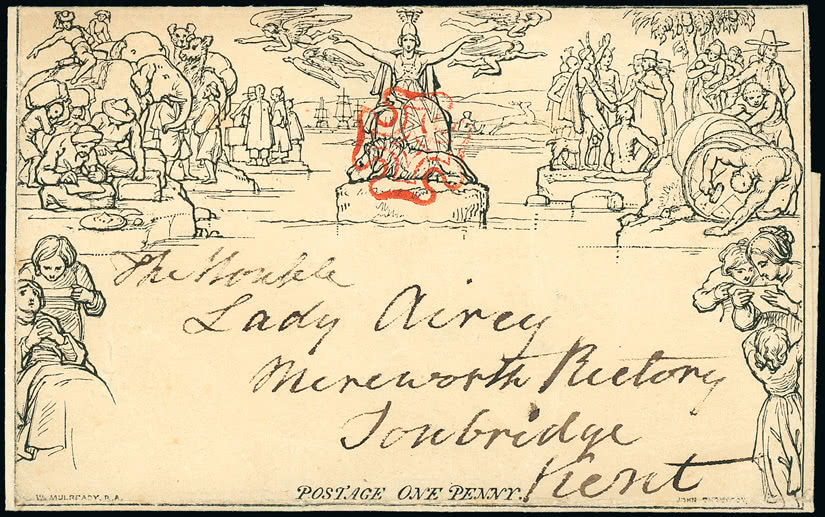 The Honble
Lady Airey
Mereworth Rectory
Tonbridge
Kent
POSTAGE ONE PENNY.
W. MULREADY, R.A.
JOHN THOMPSON